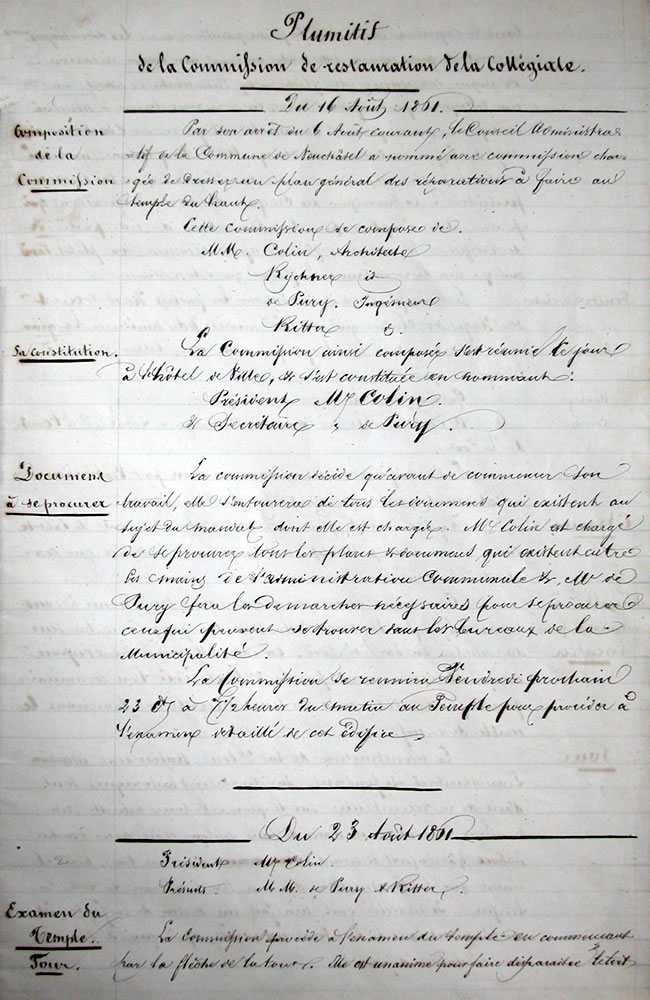 Plumitif
de la Commission de restauration de la Collégiale.
Du 16 Août 1861.
Composition
de la
Commission
Par son arrêt du 6 Août courant, le Conseil Administra-
-tif de la Commune de Neuchâtel a nommé une commission char-
-gée de dresser un plan général des réparations à faire au
temple du haut.
Cette commission se compose de.
MM. Colin, Architecte
Rychner id
de Pury. Ingénieur
Ritter d.
Sa constitution.
La Commission ainsi composée s'est réunie ce jour
à l'hôtel de Ville, & s'est constituée en nommant:
Président Mr Colin.
& Secrétaire " de Pury.
Document
à se procurer
La commission décide qu'avant de commencer son
travail, elle s'entourera de tous les documens qui existent au
sujet du mandat dont elle est chargée. Mr Colin est chargé
de se procurer tous les plans & documens qui existent entre
les mains de l'administration Communale &, Mr de
Pury fera les démarches nécessaires pour se procurer
ceux qui peuvent se trouver dans les bureaux de la
Municipalité.
La Commission se réunira Vendredi prochain
23 ct à 7 1/2 heures du matin au Temple pour procéder à
l'examen détaillé de cet édifice
Du 23 Août 1861
Président Mr Colin.
Présents. MM. de Pury & Ritter
Examen du
Temple.
Tour.
La Commission procède à l'examen du temple en commençant
par la flèche de la tour. Elle est unanime pour faire disparaître le toit